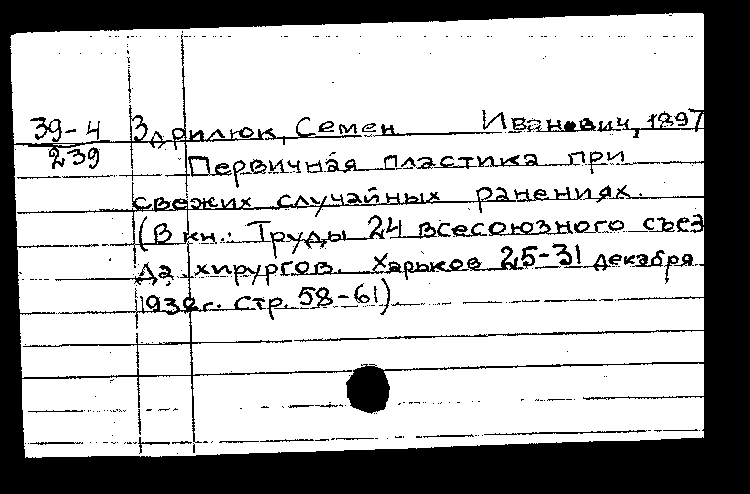 39-4
239
Здрилюк, Семен Иванович, 1897
Первичная пластика при
свежих случайных ранениях.
(В кн.: Труды 24 всесоюзного съез
да хирургов. Харьков 25-31 декабря
1938г. стр. 58-61).